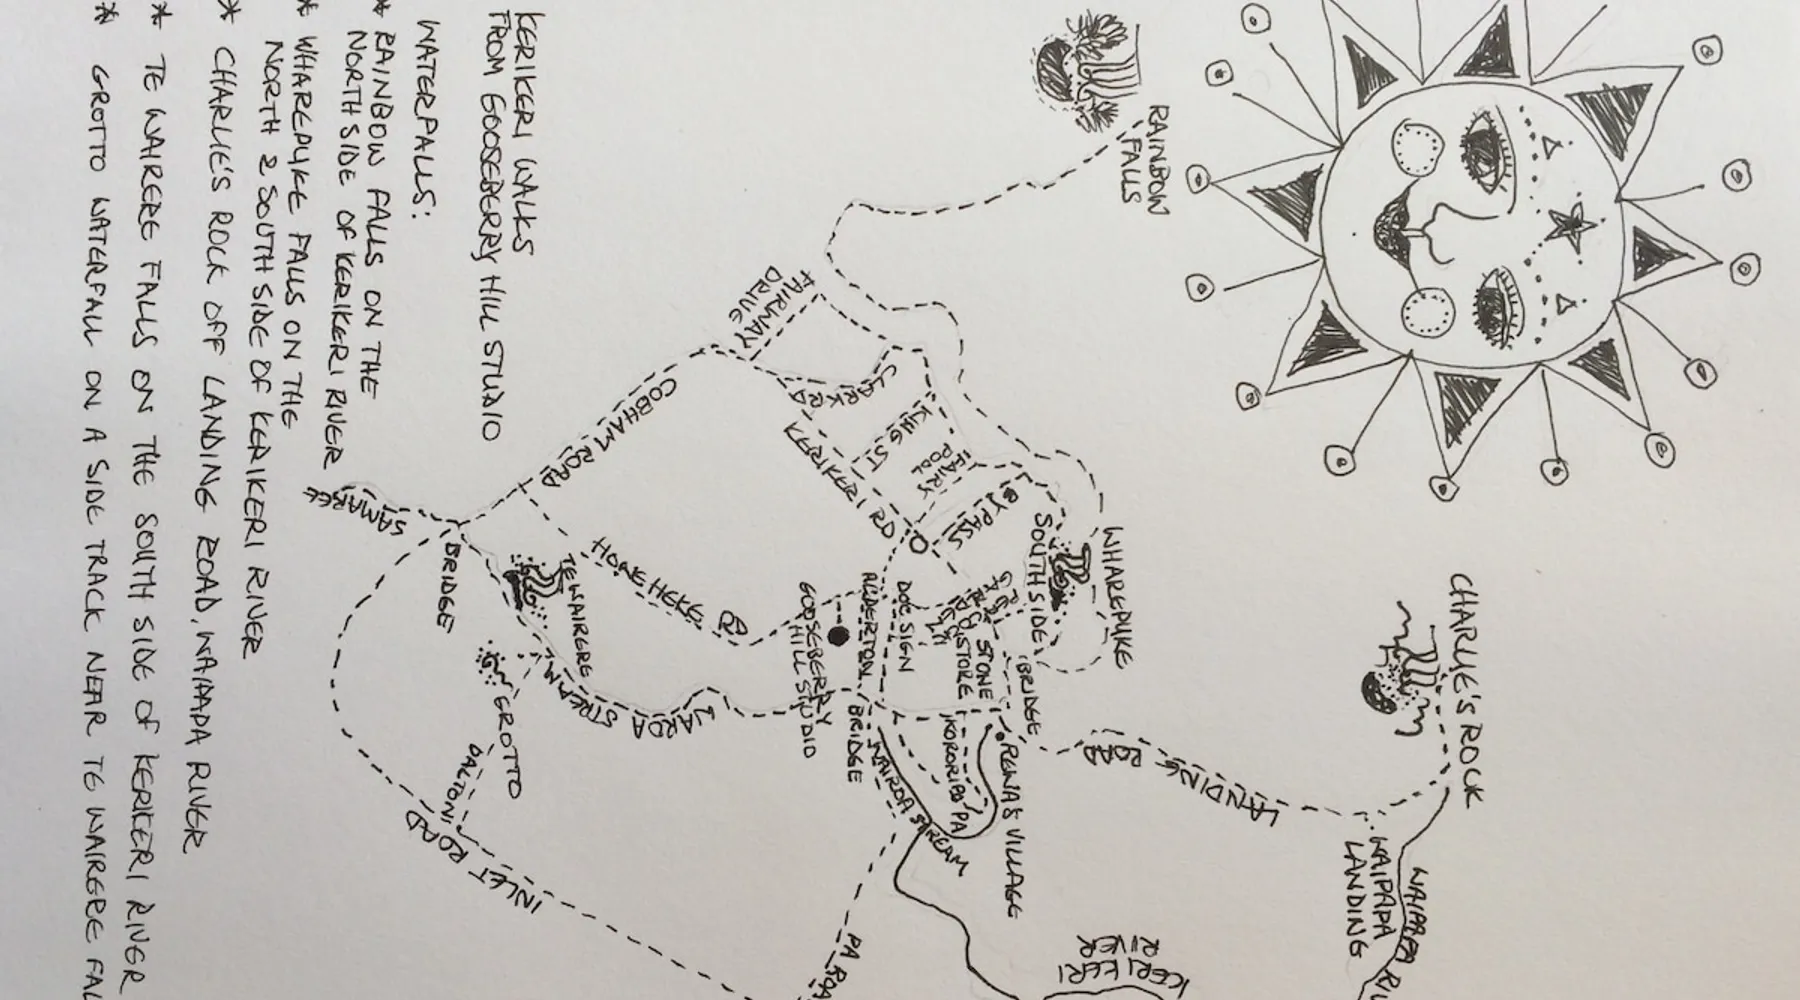 KERIKERI WALKS
FROM GOOSEBERRY HILL STUDIO
WATERFALLS:
* RAINBOW FALLS ON THE
NORTH SIDE OF KERIKERI RIVER
* WHAREPUKE FALLS ON THE
NORTH & SOUTH SIDE OF KERIKERI RIVER
* CHARLIE'S ROCK OFF LANDING ROAD, WAIPAPA RIVER
* TE WAIRERE FALLS ON THE SOUTH SIDE OF KERIKERI RIVER
* GROTTO WATERFALL ON A SIDE TRACK NEAR TE WAIRERE FAL
RAINBOW
FALLS
FAIRWAY
DRIVE
CLARK
RD
COBHAM ROAD
KING ST
FAIRY
POOL
KERIKERI RD
BYPASS
WHAREPUKE
SOUTH SIDE
SAMAREE
BRIDGE
TE WAIRERE
HONE HEKE RD
GOOSEBERRY
HILL STUDIO
ALDERTON
DOC SIGN
STONE
STORE
BRIDGE
GROTTO
DALTON
WAIROA STREAM
BRIDGE
WAIROA STREAM
KORORIPO PA
REWA'S VILLAGE
LANDING RD
CHARLIE'S ROCK
WAIPAPA
LANDING
INLET ROAD
PA ROA
KERIKERI
RIVER